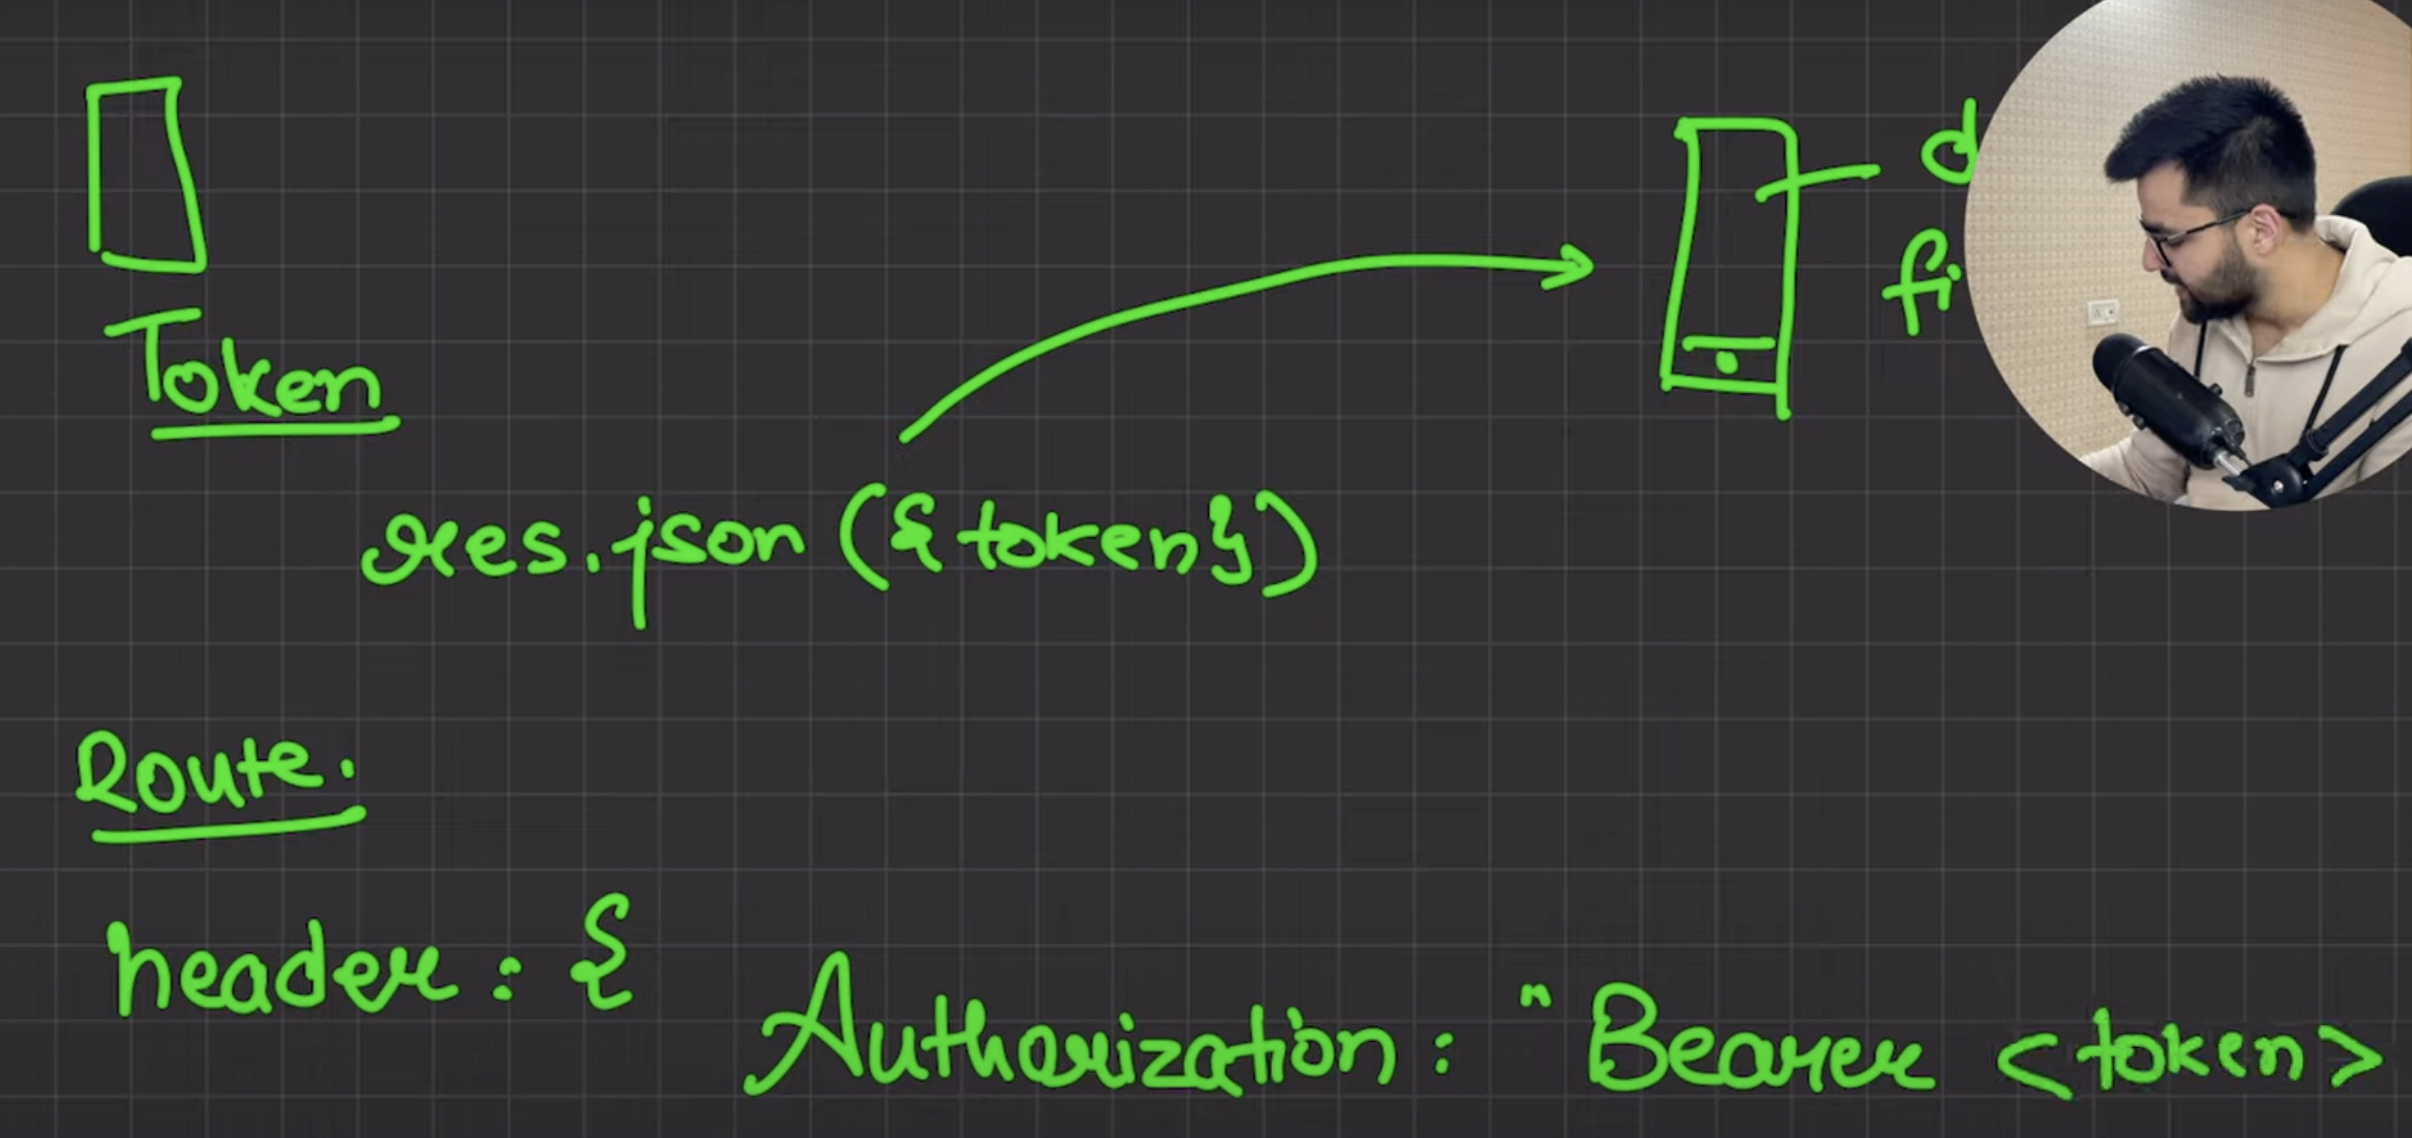 Token
res.json ({token})
Route.
header : {
Authorization : "Bearer <token>